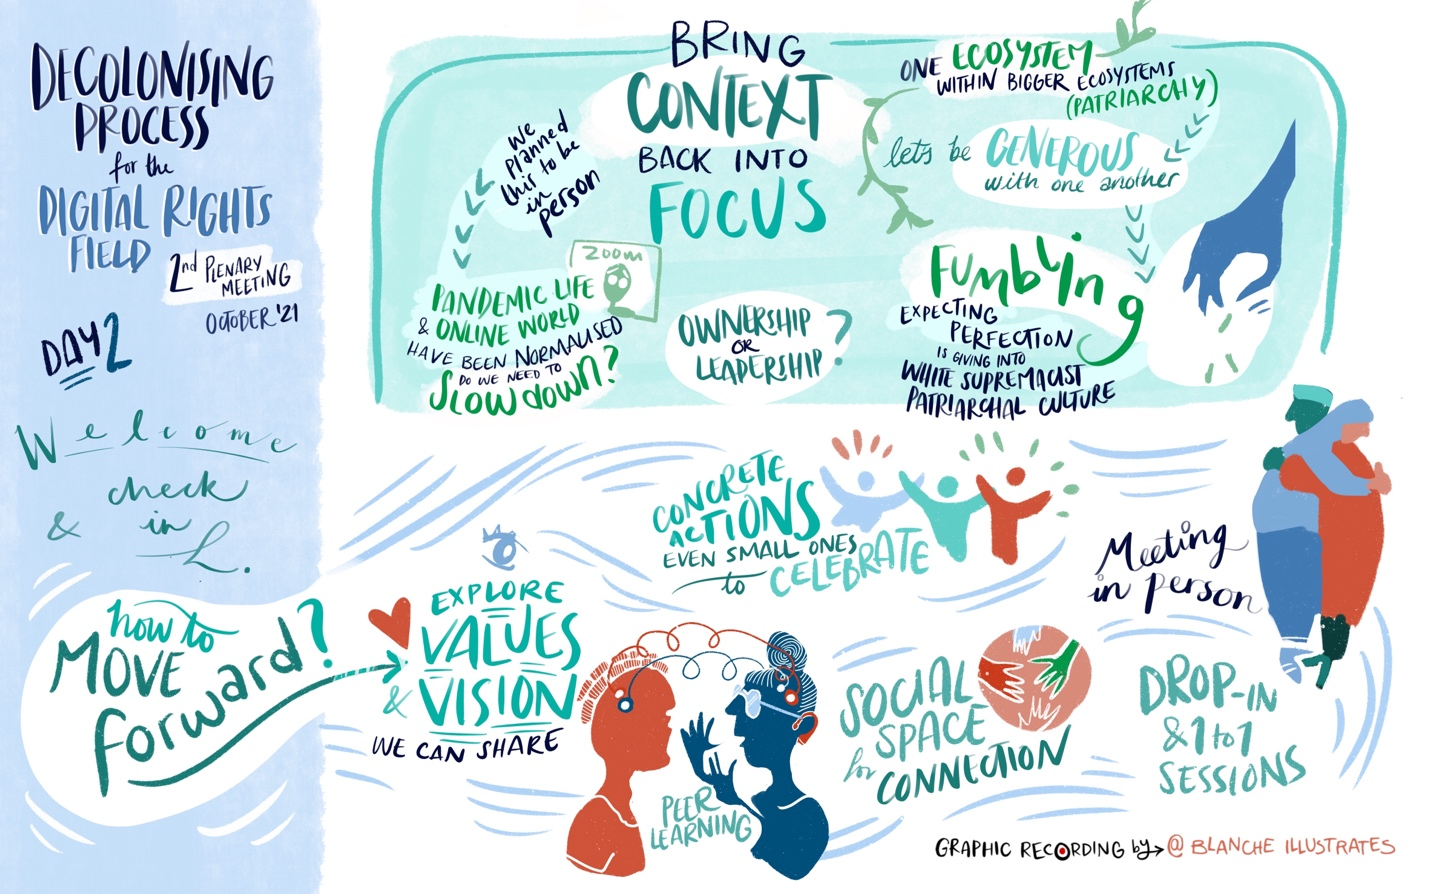 DECOLONISING
PROCESS
for the
DIGITAL RIGHTS
FIELD
2nd PLENARY
MEETING
OCTOBER '21
DAY 2
Welcome
check
& in
BRING
CONTEXT
BACK INTO
FOCUS
We
planned
this to be
in
person
ZOOM
PANDEMIC LIFE
& ONLINE WORLD
HAVE BEEN NORMALISED
DO WE NEED TO
SLOW down?
OWNERSHIP
OR
LEADERSHIP?
ONE ECOSYSTEM
WITHIN BIGGER ECOSYSTEMS
(PATRIARCHY)
let's be GENEROUS
with one another
FUMBLING
EXPECTING
PERFECTION
IS GIVING INTO
WHITE SUPREMACIST
PATRIARCHAL CULTURE
how to
MOVE
forward?
EXPLORE
VALUES
& VISION
WE CAN SHARE
CONCRETE
ACTIONS
EVEN SMALL ONES
to CELEBRATE
PEER
LEARNING
SOCIAL
SPACE
for CONNECTION
Meeting
in person
DROP-IN
& 1 to 1
SESSIONS
GRAPHIC RECORDING by → @ BLANCHE ILLUSTRATES